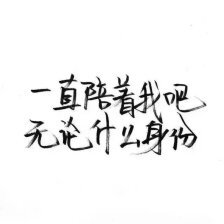 一直陪着我吧
无论什么身份